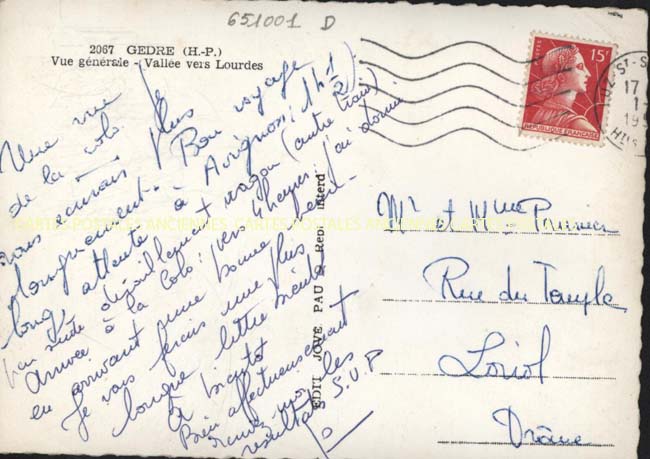 651001 D
2067 GEDRE (H.-P.)
Vue générale - Vallée vers Lourdes
Une vue
de la colo.
plus
longuement. Bon voyage
long attente à Avignon: 1h 1/2
par suite + wagon (autre train)
Arrivée à la Colo: vers 4 heures. j'ai dormi
en arrivant une bonne
Je vais faire une plus
longue lettre bientôt
à bientôt +
Bien affectueusement
les
résultats S.V.P
EDIT JOVE PAU Rep. Interd
CARTES POSTALES ANCIENNES CARTES POSTALES ANCIENNES
POSTES
15F
REPUBLIQUE FRANÇAISE
17
Mr et Mme P
Rue du Temple
Loriol
Drôme